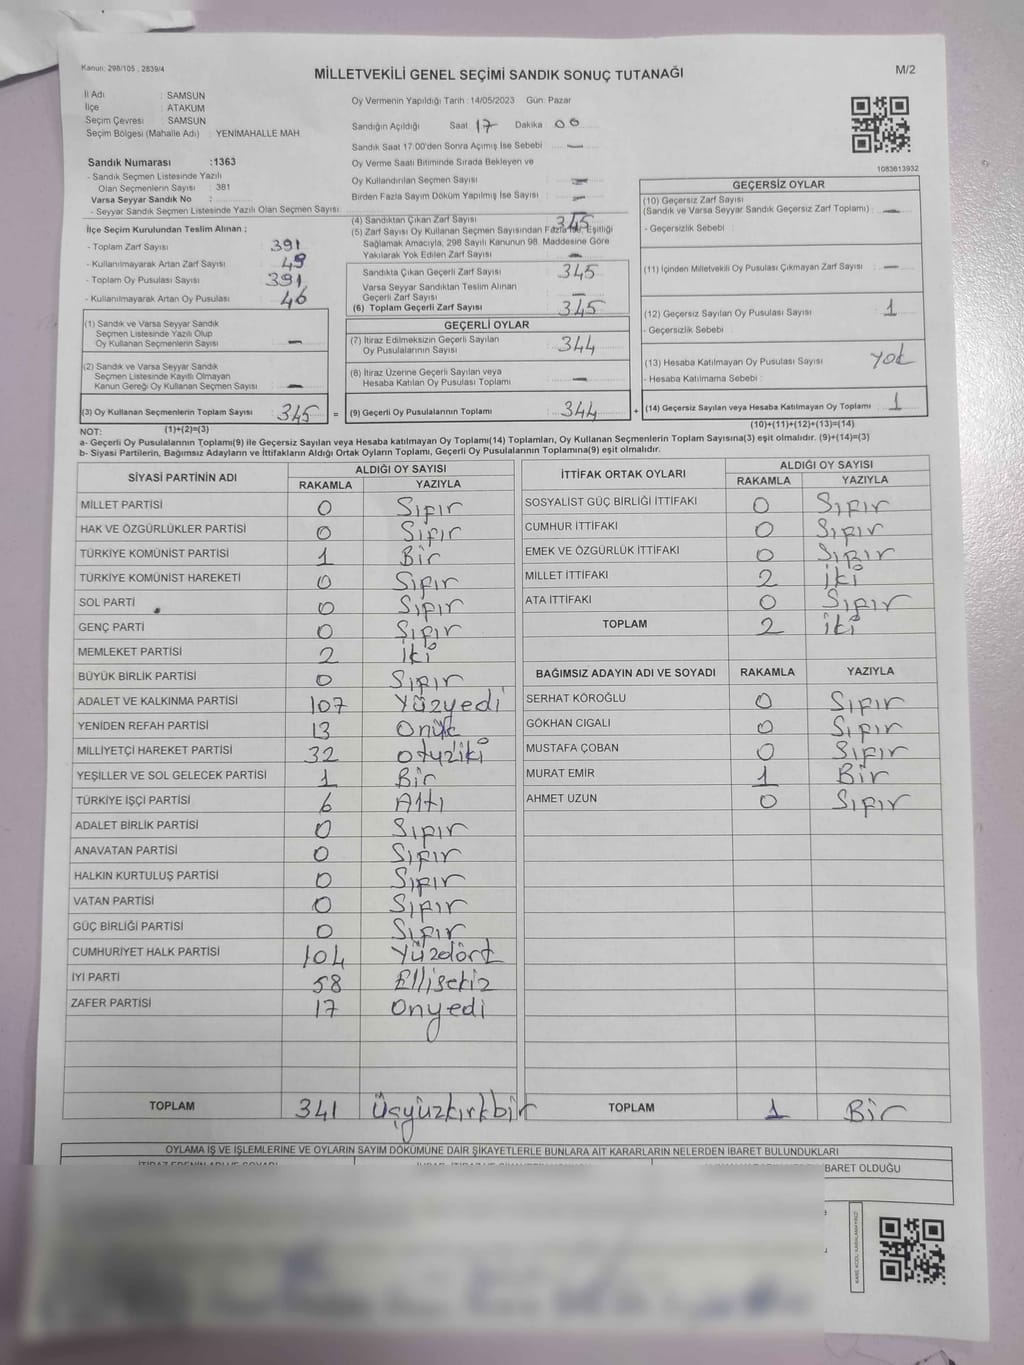 Kanun: 298/105 , 2839/4
MİLLETVEKİLİ GENEL SEÇİMİ SANDIK SONUÇ TUTANAĞI
M/2
İl Adı : SAMSUN
İlçe : ATAKUM
Seçim Çevresi : SAMSUN
Seçim Bölgesi (Mahalle Adı) : YENİMAHALLE MAH.
Sandık Numarası :1363
- Sandık Seçmen Listesinde Yazılı
Olan Seçmenlerin Sayısı : 381
Varsa Seyyar Sandık No :
- Seyyar Sandık Seçmen Listesinde Yazılı Olan Seçmen Sayısı :
İlçe Seçim Kurulundan Teslim Alınan ;
- Toplam Zarf Sayısı : 391
- Kullanılmayarak Artan Zarf Sayısı : 49
- Toplam Oy Pusulası Sayısı : 391
- Kullanılmayarak Artan Oy Pusulası : 46
(1) Sandık ve Varsa Seyyar Sandık
Seçmen Listesinde Yazılı Olup
Oy Kullanan Seçmenlerin Sayısı : —
(2) Sandık ve Varsa Seyyar Sandık
Seçmen Listesinde Kayıtlı Olmayan
Kanun Gereği Oy Kullanan Seçmen Sayısı : —
(3) Oy Kullanan Seçmenlerin Toplam Sayısı : 345 =
Oy Vermenin Yapıldığı Tarih : 14/05/2023 Gün: Pazar
Sandığın Açıldığı Saat 17 Dakika 00
Sandık Saat 17:00'den Sonra Açımış İse Sebebi : —
Oy Verme Saati Bitiminde Sırada Bekleyen ve
Oy Kullandırılan Seçmen Sayısı : —
Birden Fazla Sayım Döküm Yapılmış İse Sayısı : —
(4) Sandıktan Çıkan Zarf Sayısı : 345
(5) Zarf Sayısı Oy Kullanan Seçmen Sayısından Fazla ise, Eşitliği
Sağlamak Amacıyla, 298 Sayılı Kanunun 98. Maddesine Göre
Yakılarak Yok Edilen Zarf Sayısı : —
Sandıkta Çıkan Geçerli Zarf Sayısı : 345
Varsa Seyyar Sandıktan Teslim Alınan
Geçerli Zarf Sayısı : —
(6) Toplam Geçerli Zarf Sayısı : 345
GEÇERLİ OYLAR
(7) İtiraz Edilmeksizin Geçerli Sayılan
Oy Pusulalarının Sayısı : 344
(8) İtiraz Üzerine Geçerli Sayılan veya
Hesaba Katılan Oy Pusulası Toplamı : —
(9) Geçerli Oy Pusulalarının Toplamı : 344 +
1083613932
GEÇERSİZ OYLAR
(10) Geçersiz Zarf Sayısı
(Sandık ve Varsa Seyyar Sandık Geçersiz Zarf Toplamı) : —
- Geçersizlik Sebebi :
(11) İçinden Milletvekili Oy Pusulası Çıkmayan Zarf Sayısı : —
(12) Geçersiz Sayılan Oy Pusulası Sayısı : 1
- Geçersizlik Sebebi :
(13) Hesaba Katılmayan Oy Pusulası Sayısı : yok
- Hesaba Katılmama Sebebi :
(14) Geçersiz Sayılan veya Hesaba Katılmayan Oy Toplamı : 1
NOT: (1)+(2)=(3) (10)+(11)+(12)+(13)=(14)
a- Geçerli Oy Pusulalarının Toplamı(9) ile Geçersiz Sayılan veya Hesaba katılmayan Oy Toplamı(14) Toplamları, Oy Kullanan Seçmenlerin Toplam Sayısına(3) eşit olmalıdır. (9)+(14)=(3)
b- Siyasi Partilerin, Bağımsız Adayların ve İttifakların Aldığı Ortak Oyların Toplamı, Geçerli Oy Pusulalarının Toplamına(9) eşit olmalıdır.
SİYASİ PARTİNİN ADI ALDIĞI OY SAYISI
RAKAMLA YAZIYLA
MİLLET PARTİSİ 0 Sıfır
HAK VE ÖZGÜRLÜKLER PARTİSİ 0 Sıfır
TÜRKİYE KOMÜNİST PARTİSİ 1 Bir
TÜRKİYE KOMÜNİST HAREKETİ 0 Sıfır
SOL PARTİ 0 Sıfır
GENÇ PARTİ 0 Sıfır
MEMLEKET PARTİSİ 2 İki
BÜYÜK BİRLİK PARTİSİ 0 Sıfır
ADALET VE KALKINMA PARTİSİ 107 Yüzyedi
YENİDEN REFAH PARTİSİ 13 Onüç
MİLLİYETÇİ HAREKET PARTİSİ 32 otuziki
YEŞİLLER VE SOL GELECEK PARTİSİ 1 Bir
TÜRKİYE İŞÇİ PARTİSİ 6 Altı
ADALET BİRLİK PARTİSİ 0 Sıfır
ANAVATAN PARTİSİ 0 Sıfır
HALKIN KURTULUŞ PARTİSİ 0 Sıfır
VATAN PARTİSİ 0 Sıfır
GÜÇ BİRLİĞİ PARTİSİ 0 Sıfır
CUMHURİYET HALK PARTİSİ 104 Yüzdört
İYİ PARTİ 58 Ellisekiz
ZAFER PARTİSİ 17 Onyedi
TOPLAM 341 Üçyüzkırkbir
İTTİFAK ORTAK OYLARI ALDIĞI OY SAYISI
RAKAMLA YAZIYLA
SOSYALİST GÜÇ BİRLİĞİ İTTİFAKI 0 Sıfır
CUMHUR İTTİFAKI 0 Sıfır
EMEK VE ÖZGÜRLÜK İTTİFAKI 0 Sıfır
MİLLET İTTİFAKI 2 İki
ATA İTTİFAKI 0 Sıfır
TOPLAM 2 İki
BAĞIMSIZ ADAYIN ADI VE SOYADI RAKAMLA YAZIYLA
SERHAT KÖROĞLU 0 Sıfır
GÖKHAN CIGALI 0 Sıfır
MUSTAFA ÇOBAN 0 Sıfır
MURAT EMİR 1 Bir
AHMET UZUN 0 Sıfır
TOPLAM 1 Bir
OYLAMA İŞ VE İŞLEMLERİNE VE OYLARIN SAYIM DÖKÜMÜNE DAİR ŞİKAYETLERLE BUNLARA AİT KARARLARIN NELERDEN İBARET BULUNDUKLARI
BARET OLDUĞU